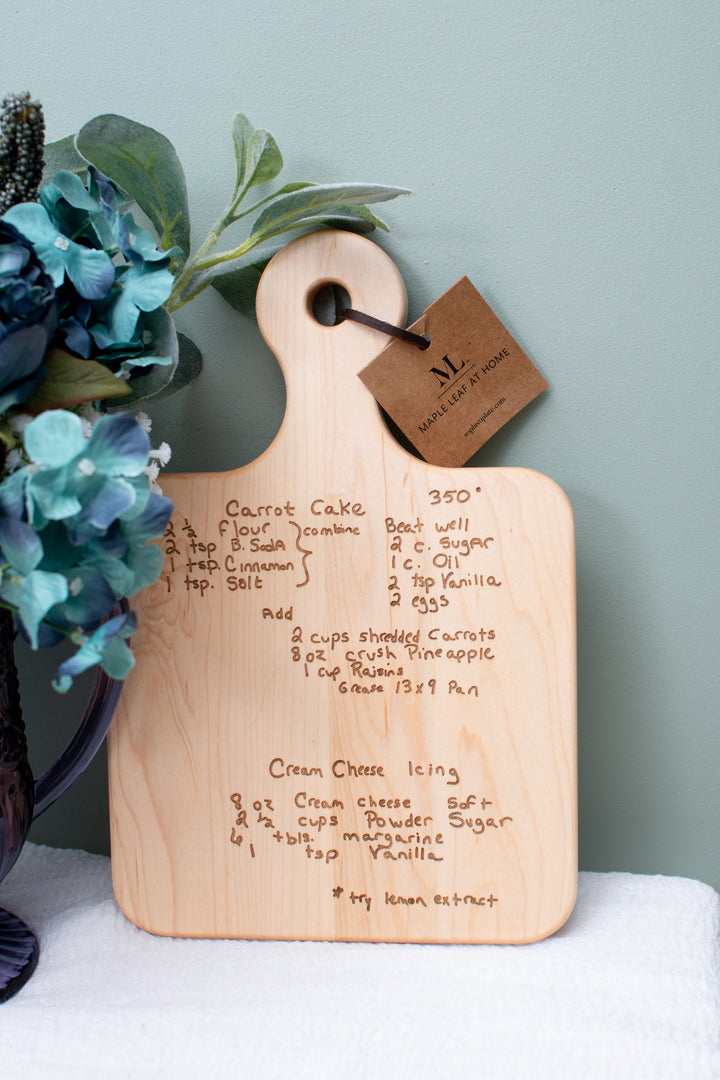 ML
MAPLE LEAF AT HOME
sophistiplate.com
Carrot Cake
350°
2 1/2 flour } combine
2 tsp B. SodA
1 tsp. Cinnamon
1 tsp. Salt
Beat well
2 c. SugAr
1 c. Oil
2 tsp Vanilla
2 eggs
Add
2 cups shredded Carrots
8 oz crush Pineapple
1 cup Raisins
Grease 13x9 Pan
Cream Cheese Icing
8 oz Cream cheese soft
2 1/2 cups Powder Sugar
6 tbls. margarine
1 tsp Vanilla
* try lemon extract